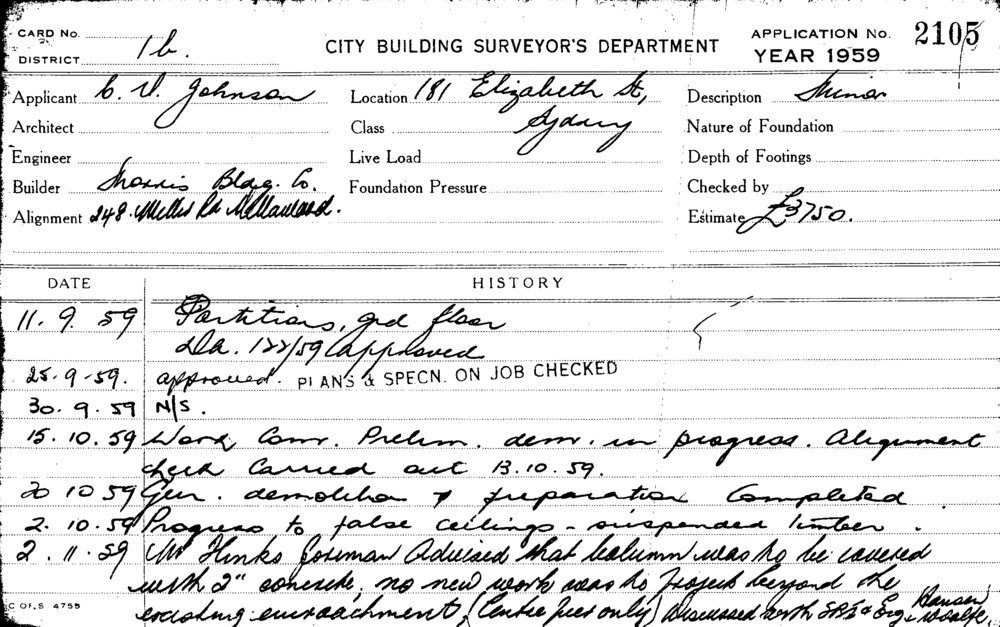 CARD No.
DISTRICT 1b.
CITY BUILDING SURVEYOR'S DEPARTMENT
APPLICATION No. 2105
YEAR 1959
Applicant C. V. Johnson Location 181 Elizabeth St, Description Minor
Architect Class Sydney Nature of Foundation
Engineer Live Load Depth of Footings
Builder Morris Bldg. Co. Foundation Pressure Checked by
Alignment 248 Rd Estimate £3750.
DATE HISTORY
11. 9. 59 Partitions, grd floor
Da. 122/59 approved
25-9-59. approved. PLANS & SPECN. ON JOB CHECKED
30. 9. 59 N/S.
15. 10. 59 Work Com. Prelim. dem. in progress. Alignment
check carried out 13.10.59.
20 10 59 Gen. demolition & preparation completed
2. 10. 59 Progress to false ceilings - suspended timber.
2. 11. 59 Mr Hinks foreman advised that column was to be covered
with 2" concrete, no new work was to project beyond the
existing encroachment, (Centre pier only) Discussed with & Eng Hansen
C OF.S 4755